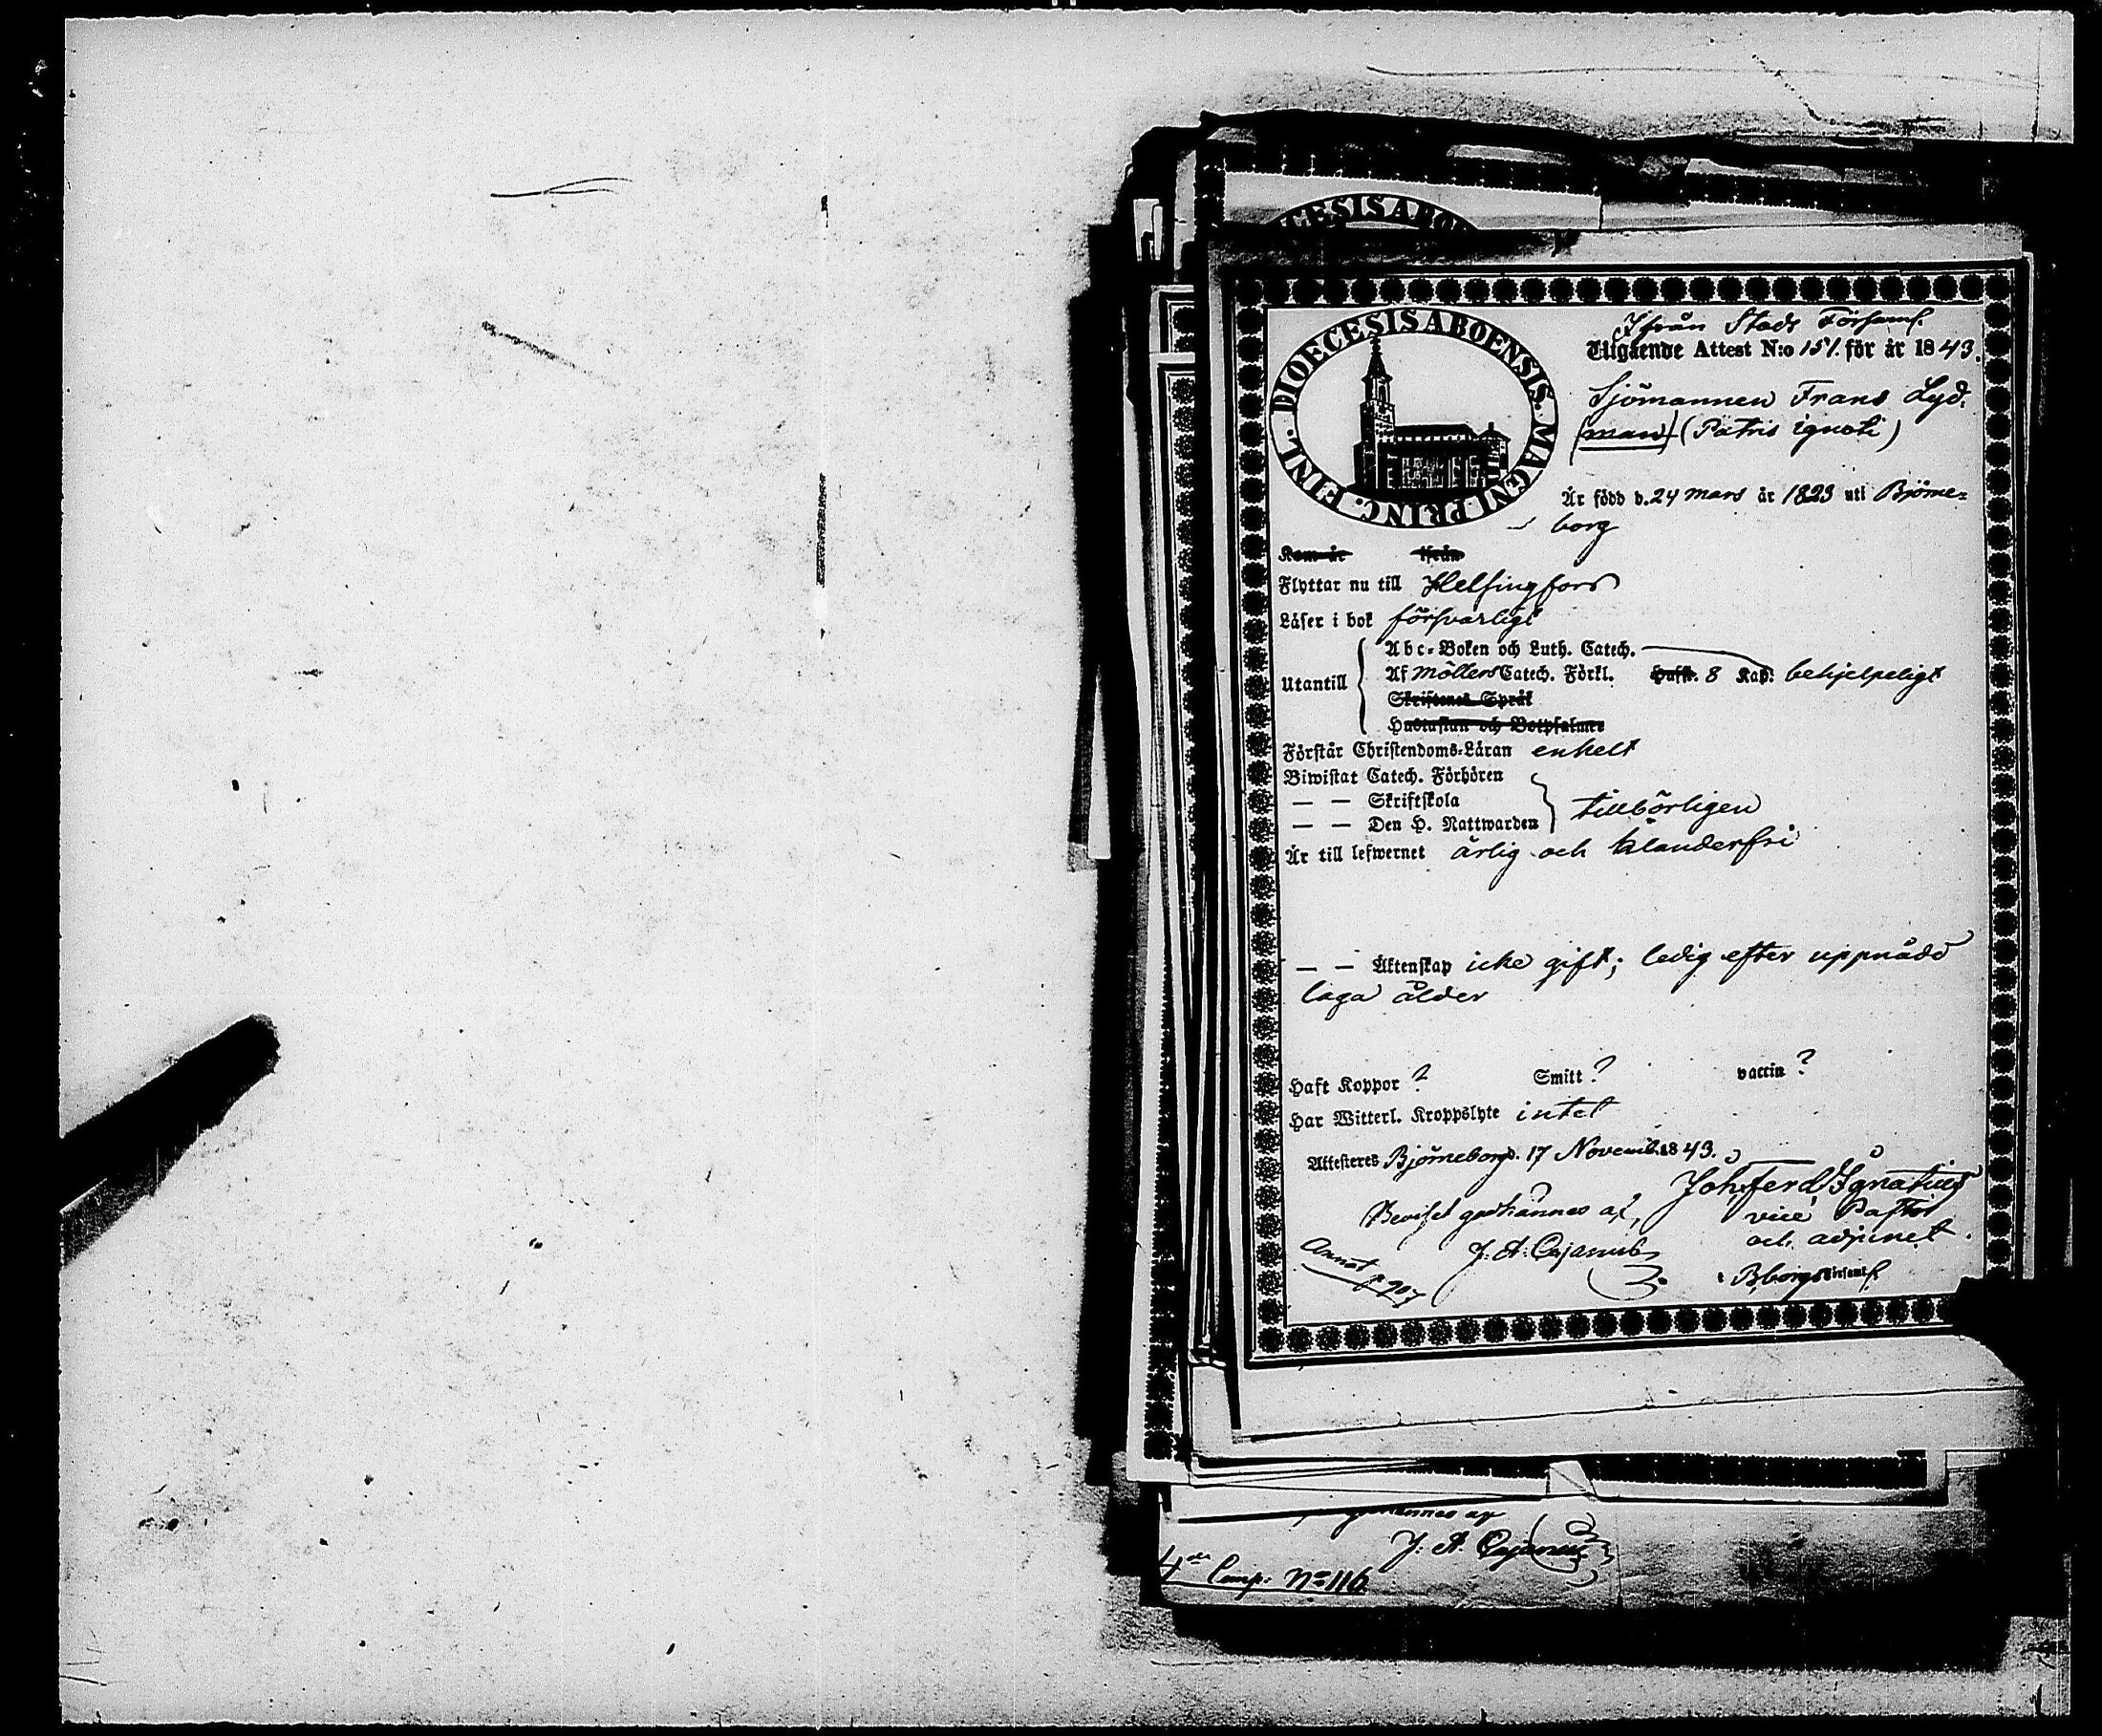 DIOECESIS ABO
DIOECESIS ABOENSIS. MAGNI PRINC. FINL.
Ifrån Stads Församl.
Utgående Attest N:o 151. för år 1843.
Sjömannen Frans Lyd-
man (Patris ignoti)
Är född d. 24 mars år 1823 uti Björne-
borg
Kom år ifrån
Flyttar nu till Helsingfors
Läser i bok försvarligt
Utantill
Abc-Boken och Luth. Catech.
Af Möllers Catech. Förkl. Hufst. 8 Kap. behjelpeligt
Skriftenes Språk
Hustaflan och Botpsalmer
Förstår Christendoms-Läran enkelt
Biwistat Catech. Förhören
— — Skriftskola
— — Den H. Nattwarden
tillbörligen
Är till lefwernet ärlig och klanderfri
— — Äktenskap icke gift; ledig efter uppnådd
laga ålder
Haft Koppor ? Smitt ? vaccin ?
Har Witterl. Kroppslyte intet
Attesteres Björneborg d. 17 Novemb. 1843.
Joh. Ferd. Ignatius
Beviset godkännes af,
vice Pastor
och adjunct.
J: A: Cajanus
Annot
p 207
i Bborgs Församl.
J: A. Cajanus
4de Comp: No 116